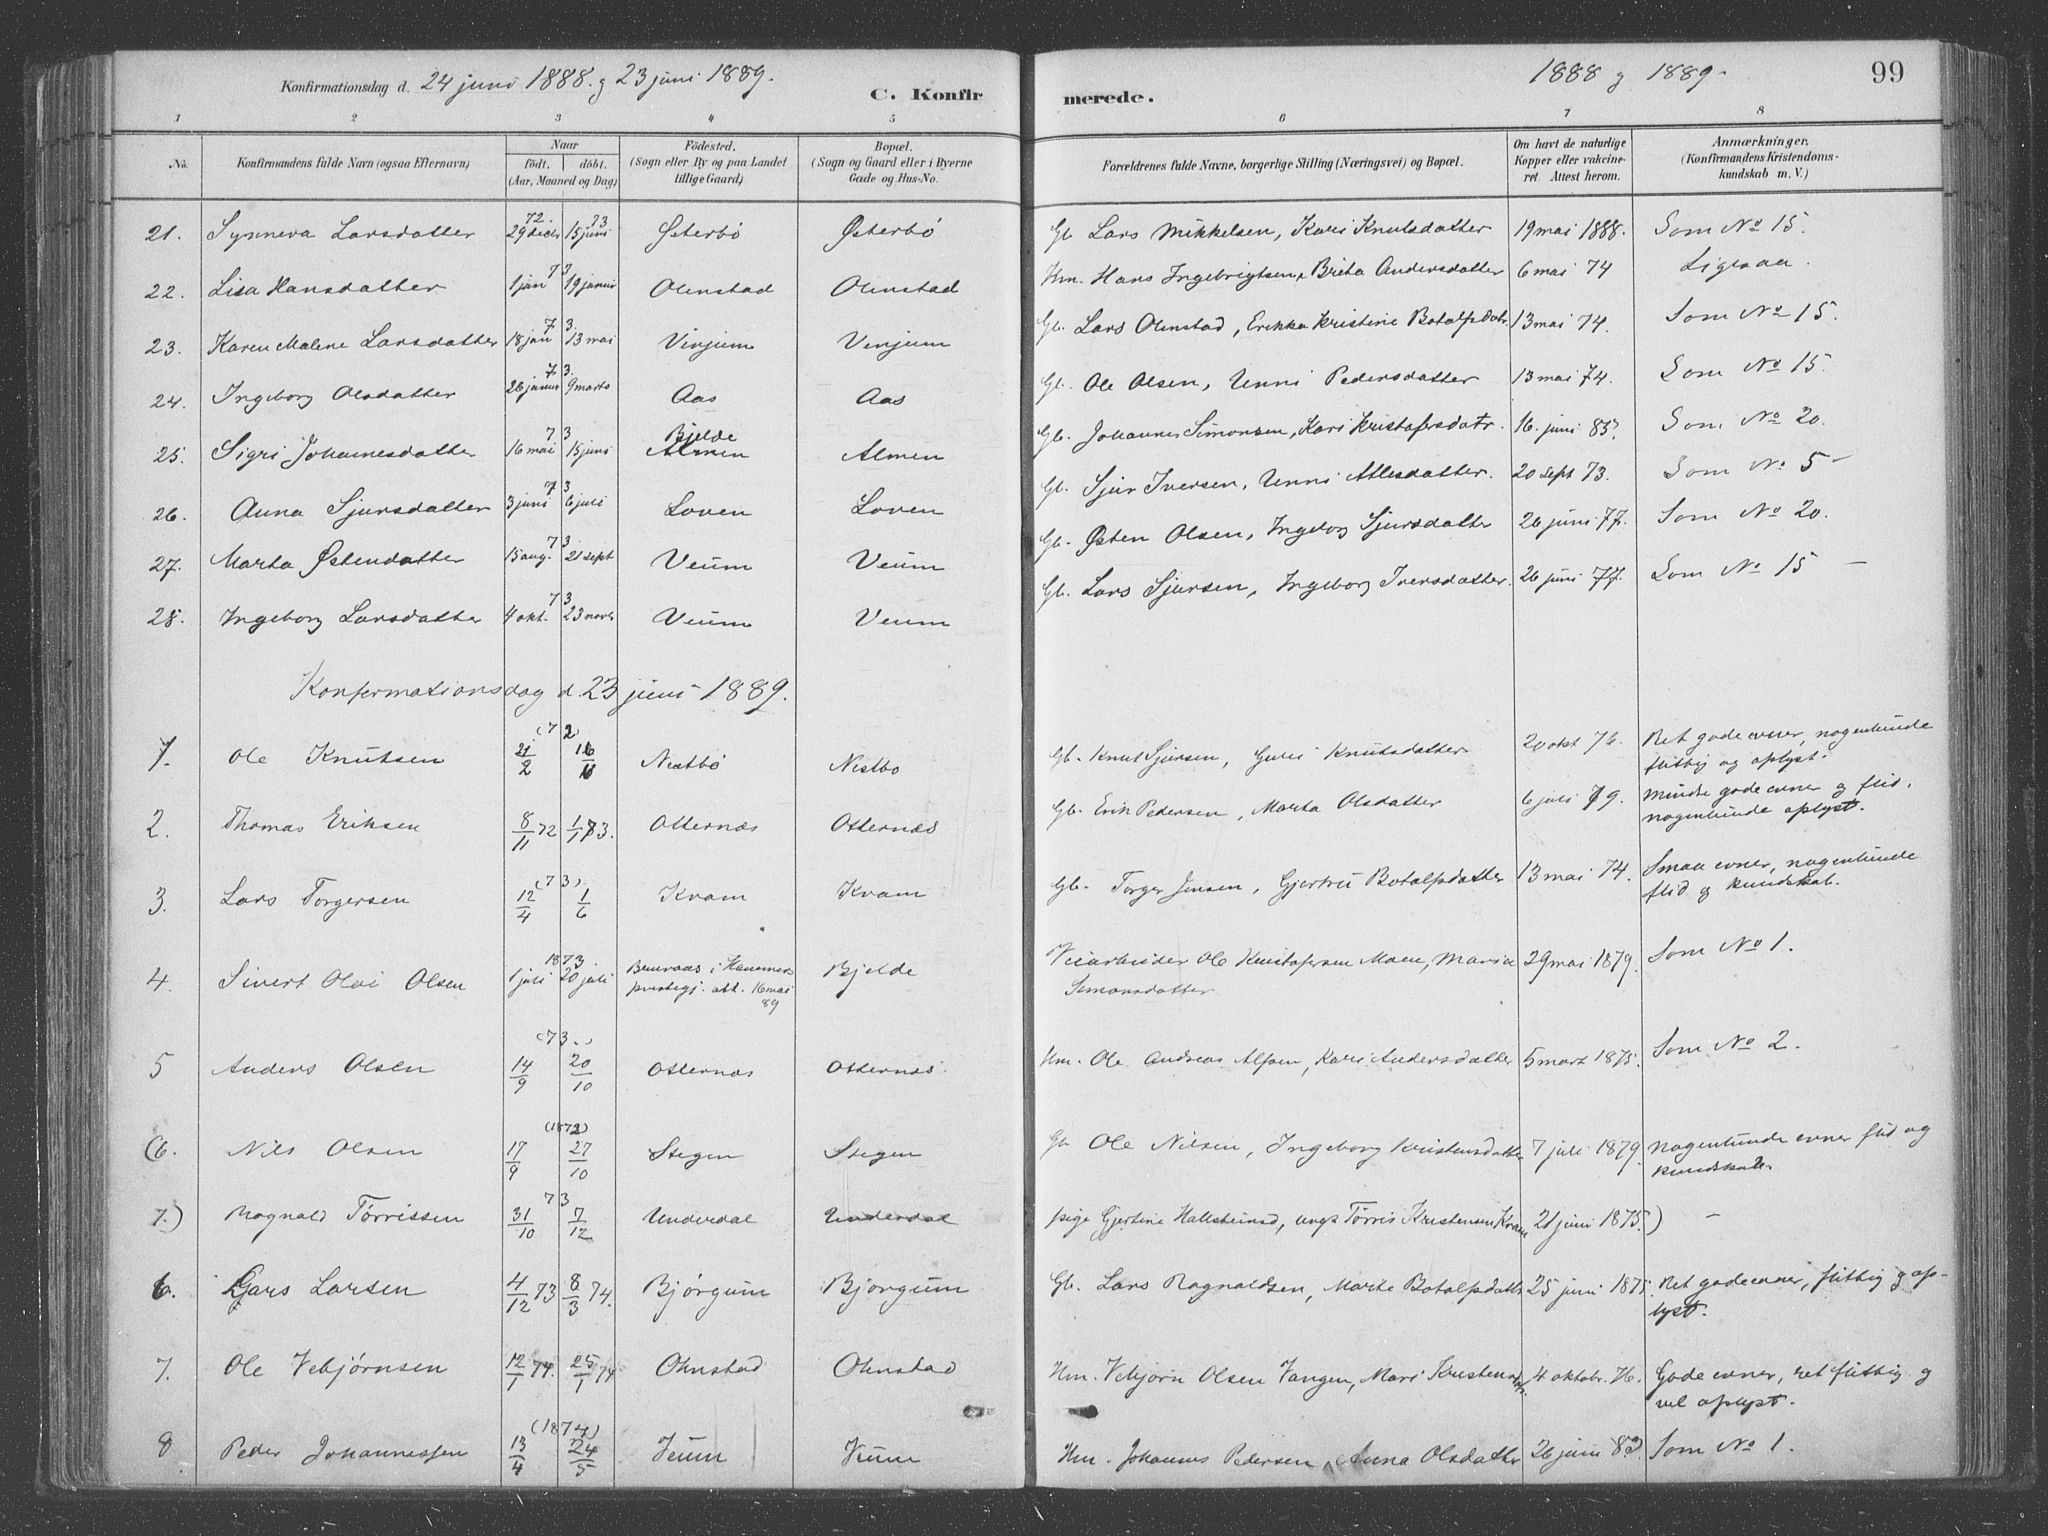 Konfirmationsdag d. 24 juni 1888. g 23 juni 1889.
C. Konfirmerede.
1888 g 1889.
99
1 2 3 4 5 6 7 8
No. Konfirmandens fulde Navn (ogsaa Efternavn) Naar født. døbt. (Aar, Maaned og Dag) Fødested. (Sogn eller By og paa Landet tillige Gaard) Bopæl. (Sogn og Gaard eller i Byerne Gade og Hus-No. Forældrenes fulde Navne, borgerlige Stilling (Næringsvei) og Bopæl. Om havt de naturlige Kopper eller vakcineret. Attest herom. Anmærkninger, (Konfirmandens Kristendomskundskab m. V.)
21. Synneva Larsdatter 72. 29 decbr 73 15 juni Østerbö Østerbö Gb Lars Mikkelsen, Kari Knutsdatter 19 mai 1888. Som No 15.
22. Lisa Hansdatter 73 1 jan 19 januar Ohnstad Ohnstad Hm. Hans Ingebrigtsen, Brita Andersdatter 6 mai 74 Ligesaa.
23. Karen Malene Larsdatter 73. 18 jan 13 mai Vinjum Vinjum Gb. Lars Ohnstad, Erikka Kristine Botolfsdatr. 13 mai 74. Som No 15.
24. Ingeborg Olsdatter 73. 26 januar 9 marts Aas Aas Gb. Ole Olsen, Unni Pedersdatter 13 mai 74. Som No 15.
25. Sigri Johannesdatter 73 16 mai 15 juni Bjelde Almen Almen Gb. Johannes Simonsen, Kari Kristofersdatr. 16. juni 83. Som No 20.
26. Anna Sjursdatter 73 3 juni 6 juli Loven Loven Gb. Sjur Iversen, Unni Atlesdatter. 20 sept 73. Som No 5 —
27. Marta Østendatter 73 15 aug. 21 sept Veum Veum Gb. Østen Olsen, Ingeborg Sjursdatter 26 juni 77. Som No 20.
28. Ingeborg Larsdatter 73 4 okt. 23 novbr Veum Veum Gb. Lars Sjursen, Ingeborg Iversdatter. 26 juni 77. Som No 15 —
Konfermationsdag d. 23 juni 1889.
1. Ole Knutsen (72) 21/2 Nestbö Nestbo Gb. Knut Sjursen, Guri Knutsdatter 20 okt 76. Ret gode evner, nogenlunde flittig og oplyst.
2. Thomas Eriksen 8/11 72 1/1 73. Otternæs Otternæs Gb. Erik Pedersen, Marta Olsdatter 6 juli 79. Mindre gode evner g flid, nogenlunde oplyst.
3. Lars Torgersen (73) 12/4 1/6 Kvam Kvam Gb. Torger Jensen, Gjertru Botolfsdatter 13 mai 74. Smaa evner, nogenlunde flid g kundskab.
4. Sivert Olai Olsen 1873 1 juli 20 juli i prestegj. att. 16 mai 89 Bjelde Veiarbeider Ole Kristofersen Moen, Maria Simonsdatter 29 mai 1879. Som No 1.
5 Anders Olsen (73.) 14/9 20/10 Otternæs Otternæs Hm. Ole Andreas Alfsen, Kari Andersdatter 5 marz 1875. Som No 2.
(6. Nils Olsen (1872) 17/9 27/10 Stegen Stegen Gb Ole Nilsen, Ingeborg Kristensdatter 7 juli 1879 nogenlunde evner flid og kundskab.
7.) Rognald Tørrissen 73 31/10 7/12 Underdal Underdal pige Gjertine Hallsteinsd, ungk Tørris Kristensen Kvam 21 juni 1875. ) —
6. Lars Larsen 4/12 73 8/3 74. Bjørgum Bjørgum Gb. Lars Rognaldsen, Marte Botolfsdattr 25 juni 1875. Ret gode evner, flittig g oplyst.
7. Ole Vebjørnsen 12/1 74. 25/1 74 Ohnstad Ohnstad Hm. Vebjørn Olsen Vangen, Mari Kristensdtr 4 oktobr. 76. Gode evner, ret flittig g vel oplyst.
8 Peder Johannessen (1874) 13/4 24/5 Veum Veum Hm. Johannes Pedersen, Anna Olsdatter 26 juni 83. Som No 1.